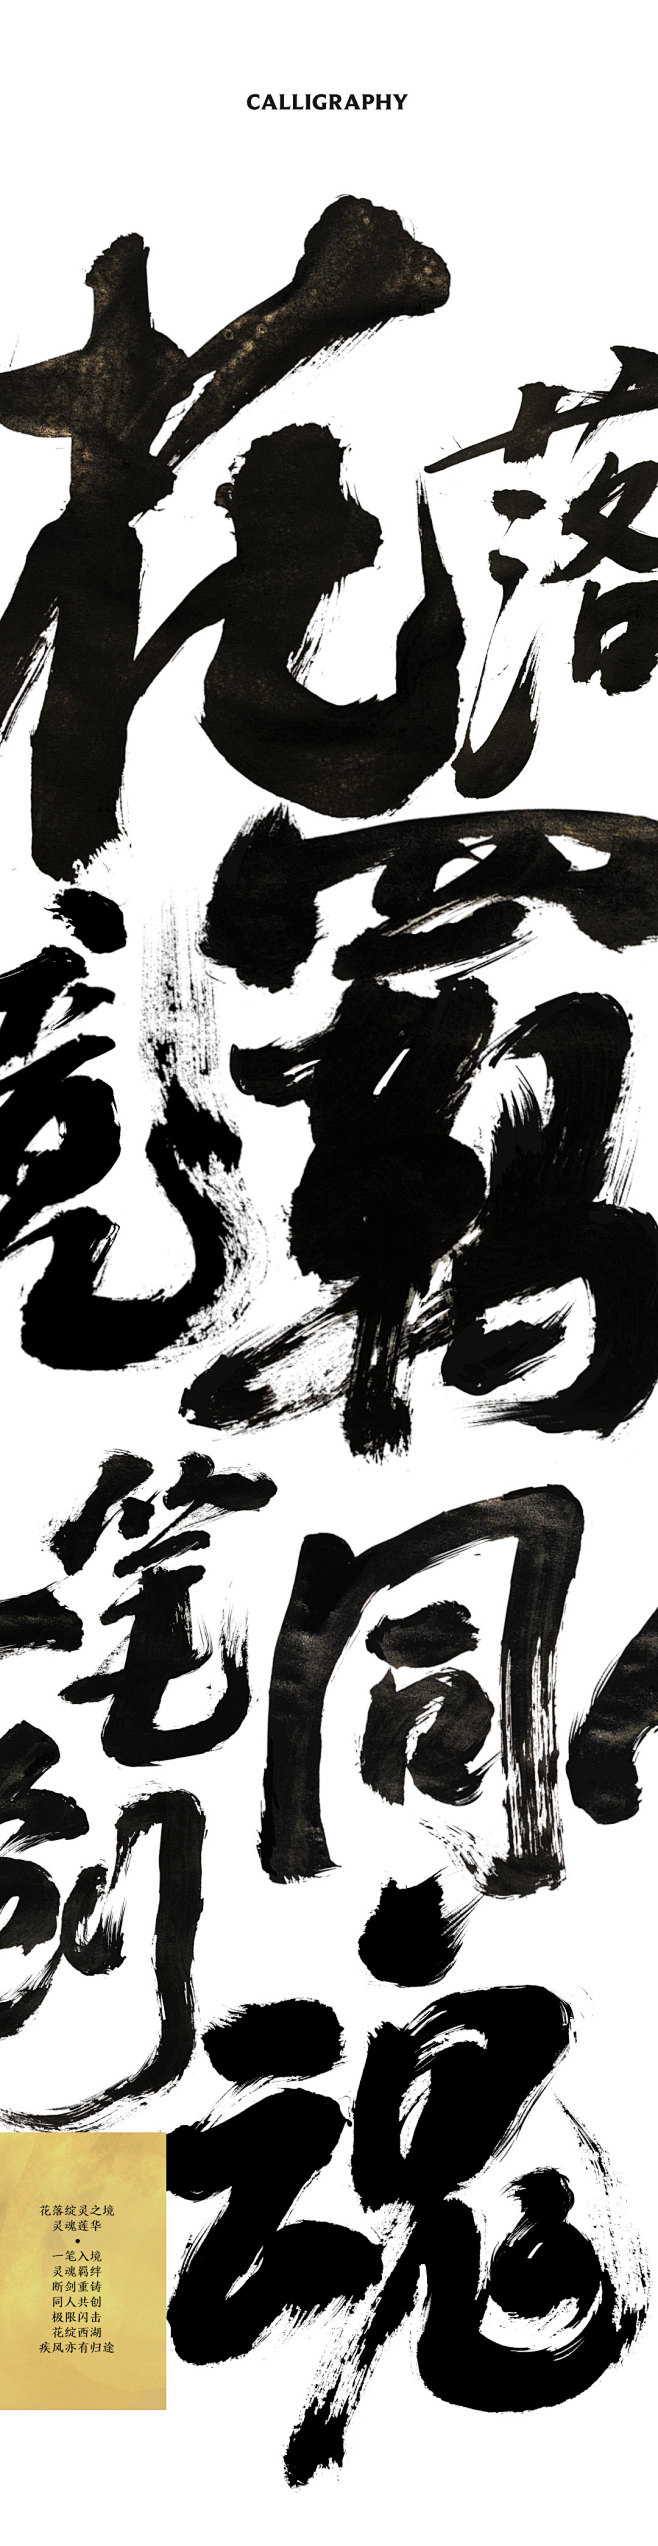 CALLIGRAPHY
花落
境羁
一笔同人
剑魂
花落绽灵之境
灵魂莲华
•
一笔入境
灵魂羁绊
断剑重铸
同人共创
极限闪击
花绽西湖
疾风亦有归途